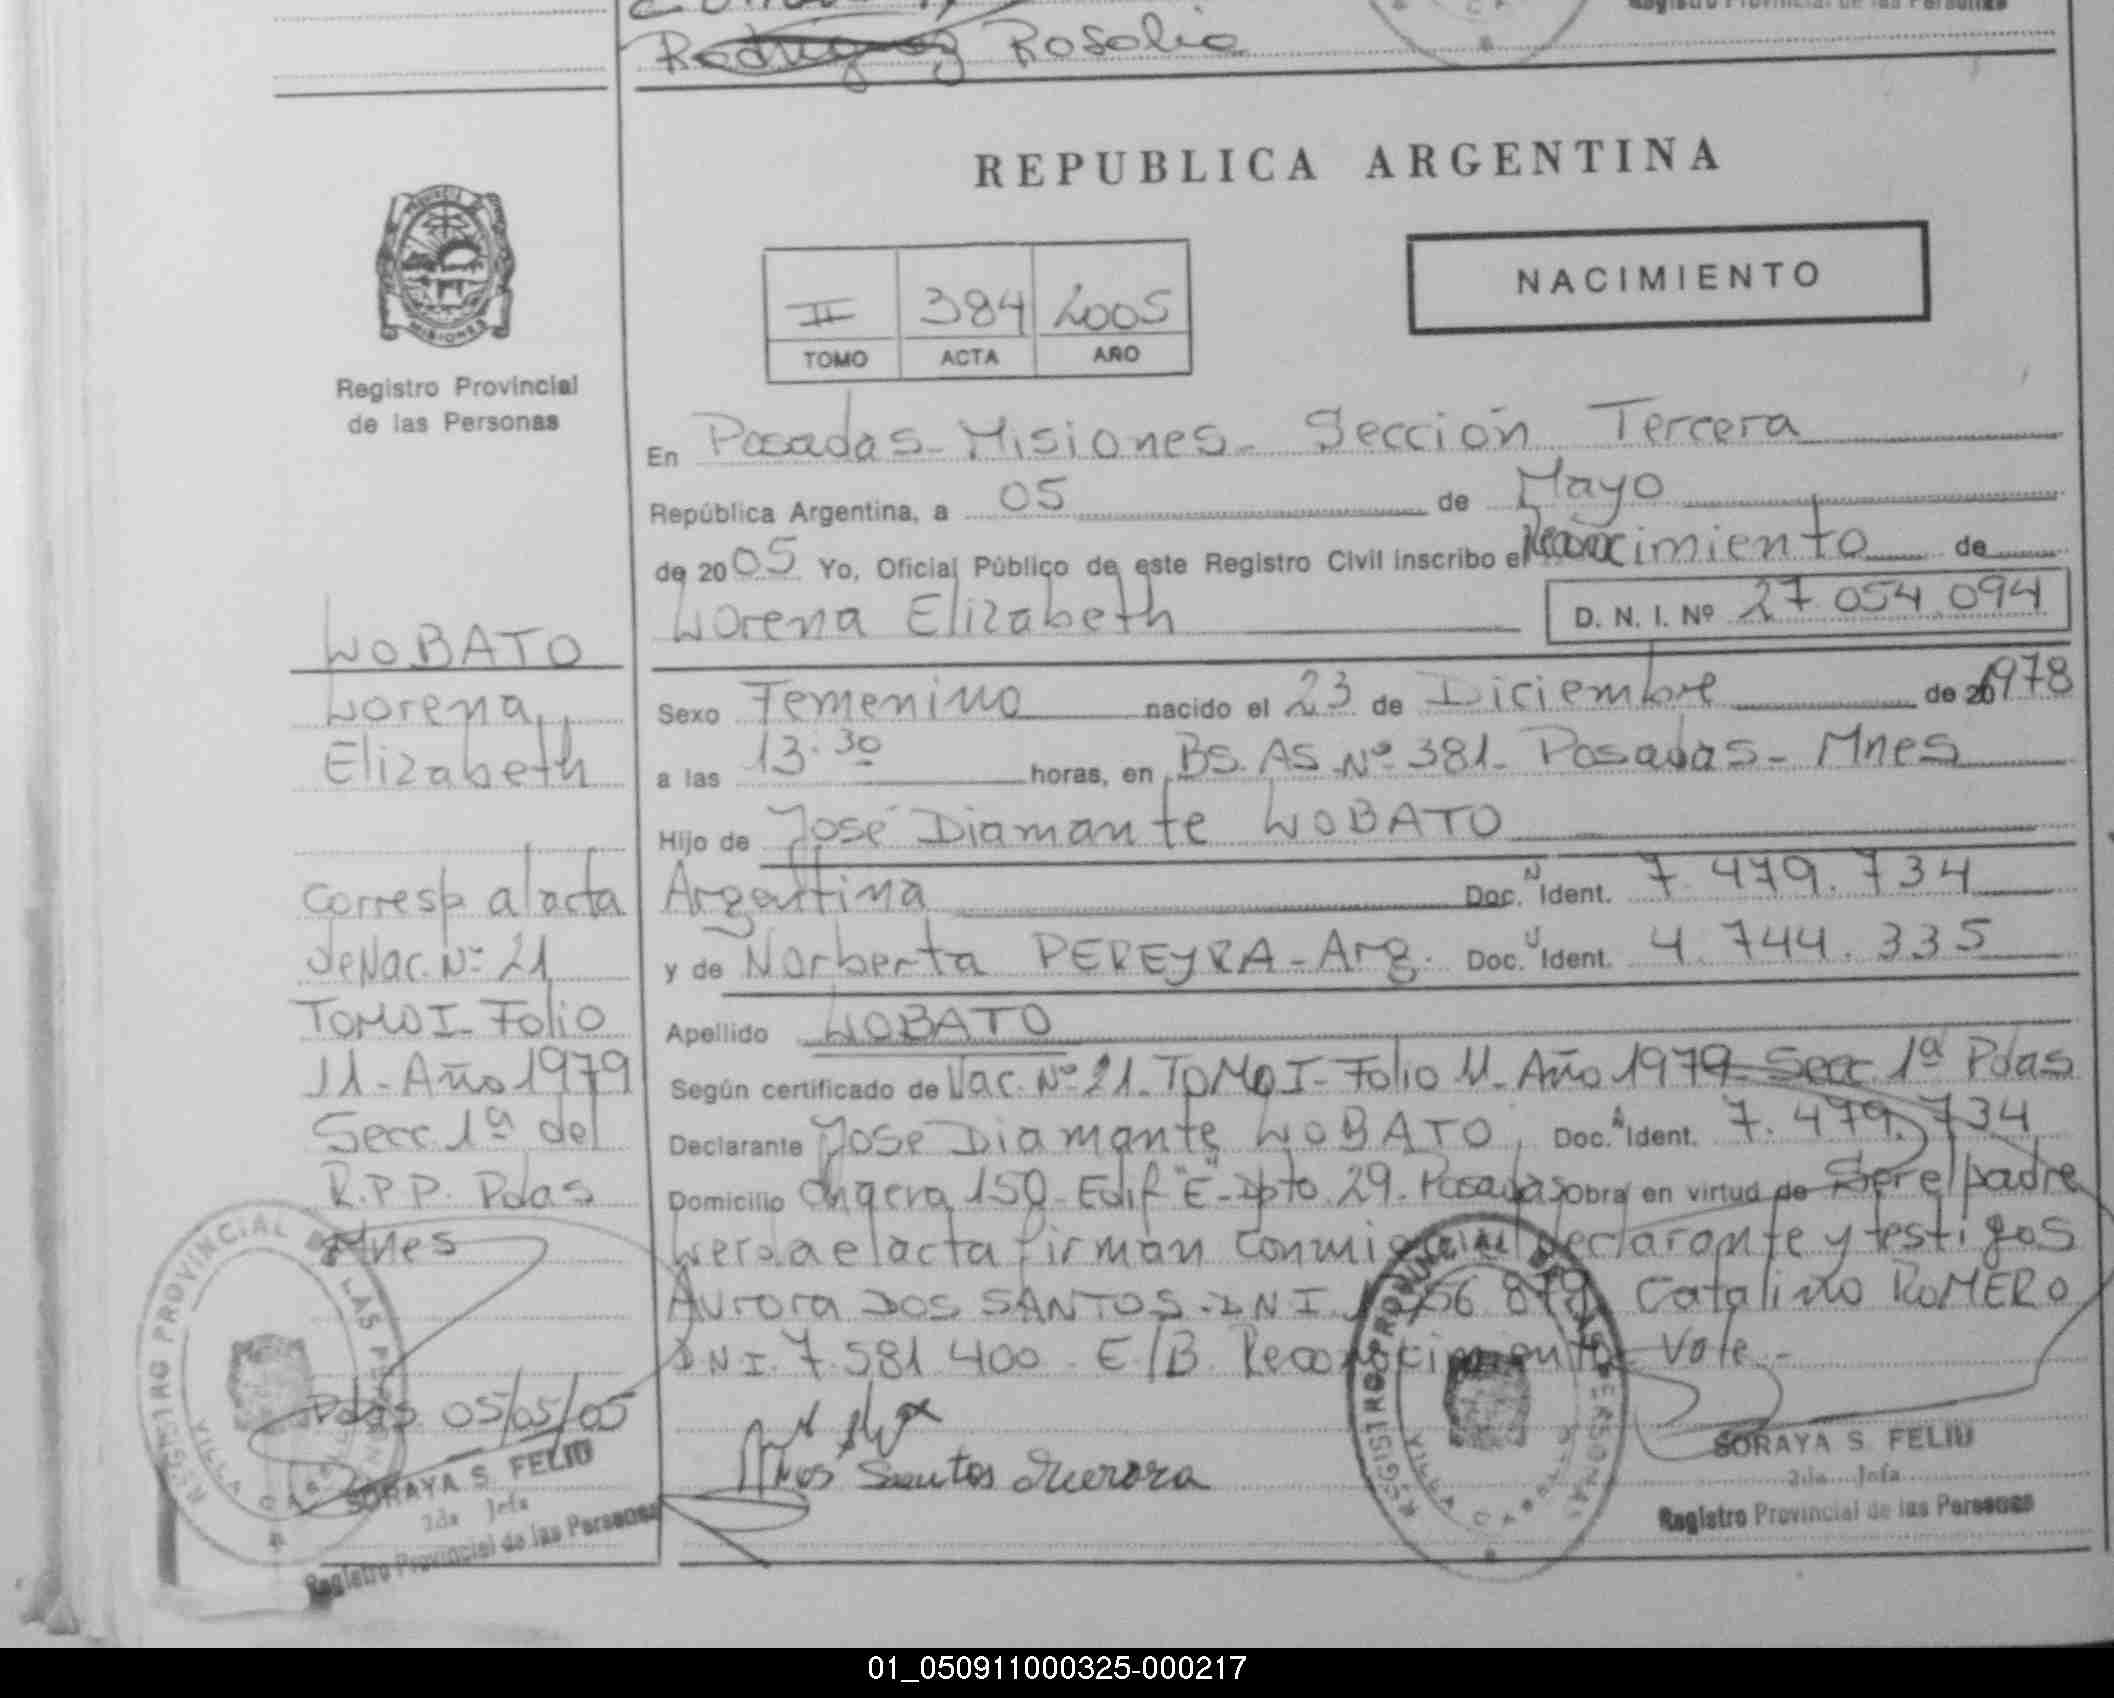 Rodriguez Rosalia
Registro Provincial de las Personas
REPUBLICA ARGENTINA
NACIMIENTO
II 384 2005
TOMO ACTA AÑO
MISIONES
Registro Provincial
de las Personas
LOBATO
Lorena
Elizabeth
Corresp. al acta
de Nac. Nº 21
TOMO I - Folio
11 - Año 1979
Secc 1ª del
R.P.P. Pdas
Mnes
Pdas 05/05/05
SORAYA S. FELIU
2da Jefa
Registro Provincial de las Personas
En Posadas - Misiones - Sección Tercera
República Argentina, a 05 de Mayo
de 2005 Yo, Oficial Público de este Registro Civil inscribo el Reconocimiento de
Lorena Elizabeth D. N. I. Nº 27.054.094
Sexo Femenino nacido el 23 de Diciembre de 1978
a las 13.30 horas, en BS. AS. Nº 381 - Posadas - Mnes
Hijo de José Diamante LOBATO
Argentina Doc. Ident. 7.479.734
y de Norberta PEREYRA - Arg. Doc. Ident. 4.744.335
Apellido LOBATO
Según certificado de Nac. Nº 21. TOMO I - Folio 11 - Año 1979 - Secc. 1ª Pdas
Declarante José Diamante LOBATO, Doc. Ident. 7.479.734
Domicilio 150 - Edif "E" - Dpto 29 - Posadas obra en virtud de Ser el padre
Leida el acta firman conmigo el declarante y testigos
Aurora DOS SANTOS - DNI Catalino ROMERO
DNI. 7.581.400. E/B. Reconocimiento Vale. -
Dos Santos Aurora
REGISTRO PROVINCIAL DE LAS PERSONAS
SORAYA S. FELIU
2da Jefa
Registro Provincial de las Personas
01_050911000325-000217